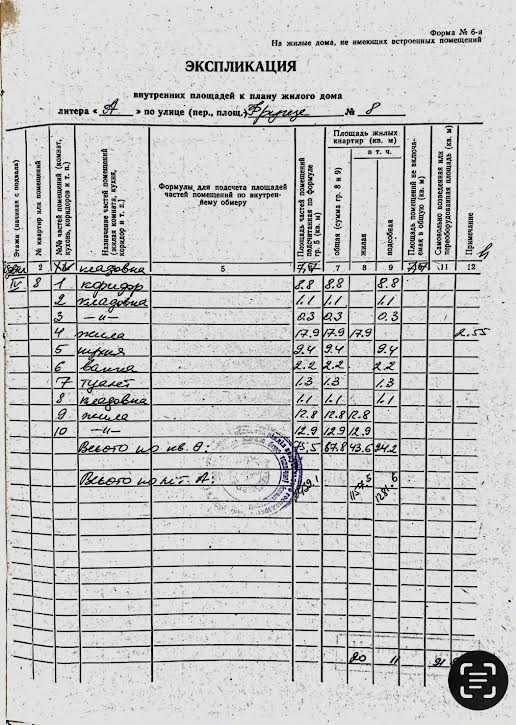 Форма № 6-а
На жилые дома, не имеющих встроенных помещений
ЭКСПЛИКАЦИЯ
внутренних площадей к плану жилого дома
литера « А » по улице (пер., площ.) Фрунзе № 8
Этажи (начиная с подвала)
№ квартир или помещений
№№ частей помещений (комнат, кухонь, коридоров и т. п.)
Назначение частей помещений (жилая комната, кухня, коридор и т. п.)
Формулы для подсчета площадей частей помещения по внутреннему обмеру
Площадь частей помещений подсчитанная по формуле гр. 5 (кв. м)
Площадь жилых квартир (кв. м)
общая (сумма гр. 8 и 9)
в т. ч.
жилая
подсобная
Площадь помещений не включаемая в общую (кв. м)
Самовольно возведенная или переоборудованная площадь (кв. м)
Примечание
2 XVI кладовка 5 7,7 7 8 9 7,7 11 12
IV 8 1 коридор 8.8 8.8 8.8
2 кладовка 1.1 1.1 1.1
3 -"- 0.3 0.3 0.3
4 жила 17.9 17.9 17.9 2.55
5 кухня 9.4 9.4 9.4
6 ванна 2.2 2.2 2.2
7 туалет 1.3 1.3 1.3
8 кладовка 1.1 1.1 1.1
9 жила 12.8 12.8 12.8
10 -"- 12.9 12.9 12.9
Всього по кв. 8: 75.5 67.8 43.6 24.2
Всього по літ. А: 2439.1 1157.5 1281.6
20 11 21